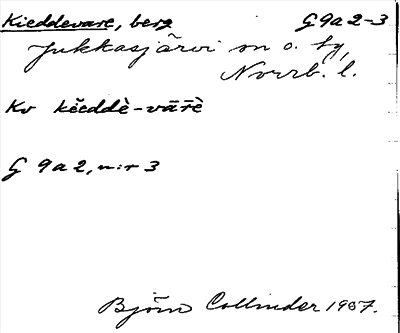 Kieddevare, berg G 9a 2-3
Jukkasjärvi sn o. tg,
Norrb. l.
Kv kĕeddè-vār̄è
G 9a2, n:r 3
Björn Collinder 1937.